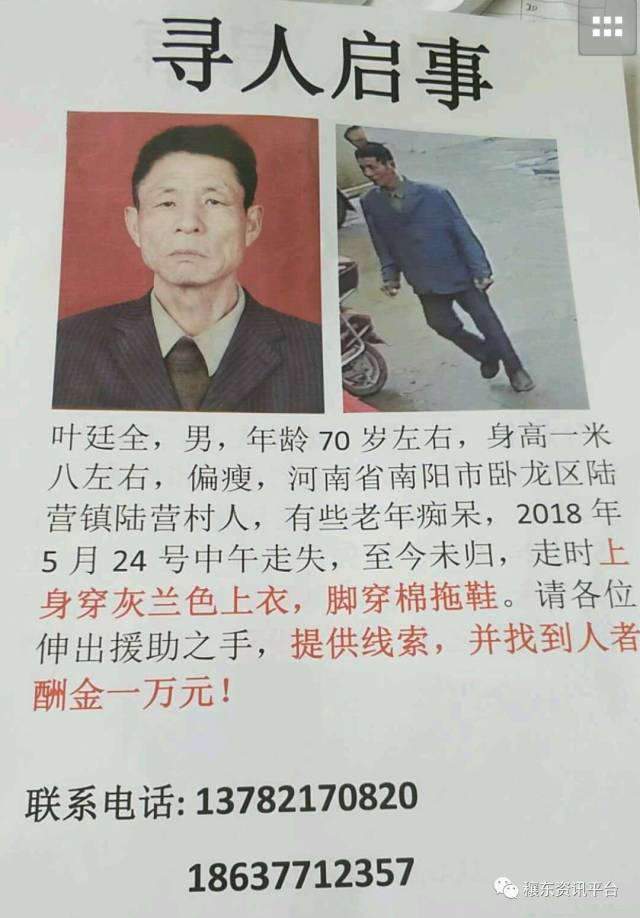 寻人启事
叶廷全，男，年龄 70 岁左右，身高一米
八左右，偏瘦，河南省南阳市卧龙区陆
营镇陆营村人，有些老年痴呆，2018 年
5 月 24 号中午走失，至今未归，走时上
身穿灰兰色上衣，脚穿棉拖鞋。请各位
伸出援助之手，提供线索，并找到人者
酬金一万元！
联系电话: 13782170820
18637712357
穰东资讯平台